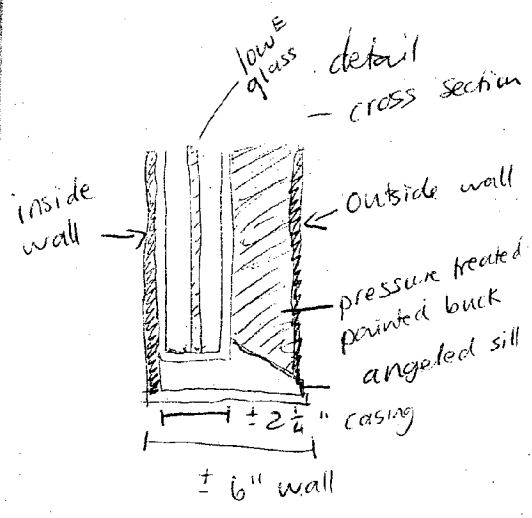 low E
glass
detail
- cross section
inside
wall
outside wall
pressure treated
painted buck
angeled sill
± 2 1/4 " casing
± 6" wall